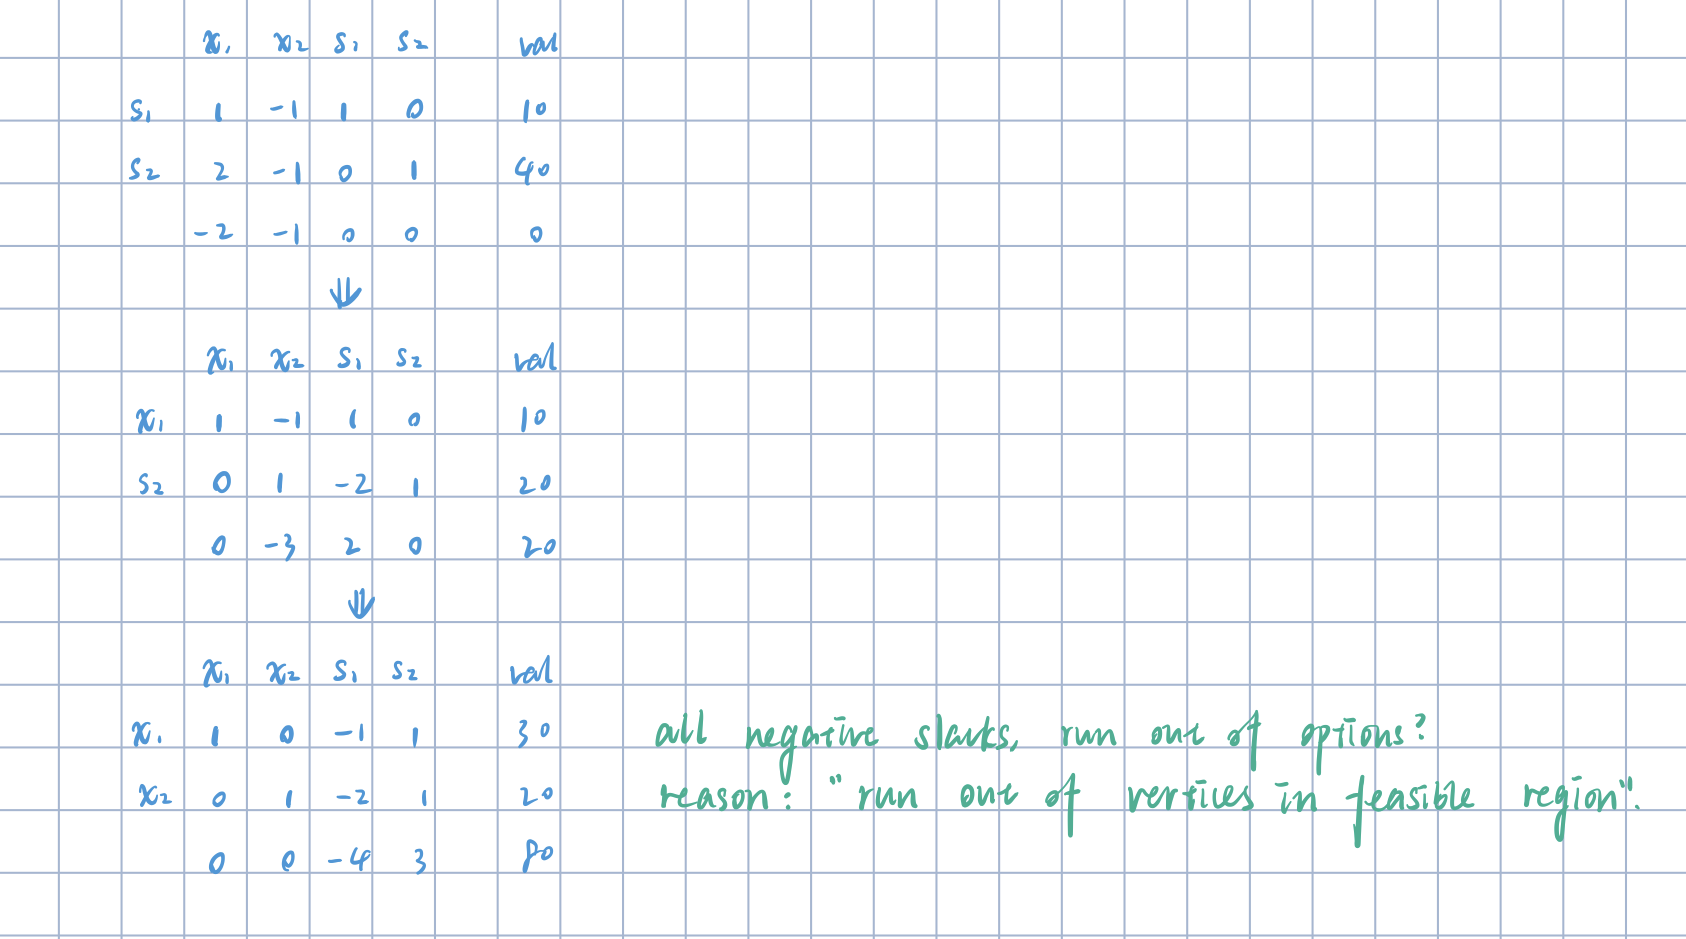 x₁ x₂ s₁ s₂ val
s₁ 1 -1 1 0 10
s₂ 2 -1 0 1 40
-2 -1 0 0 0
⇓
x₁ x₂ s₁ s₂ val
x₁ 1 -1 1 0 10
s₂ 0 1 -2 1 20
0 -3 2 0 20
⇓
x₁ x₂ s₁ s₂ val
x₁ 1 0 -1 1 30 all negative slacks, run out of options?
x₂ 0 1 -2 1 20 reason: "run out of vertices in feasible region".
0 0 -4 3 80